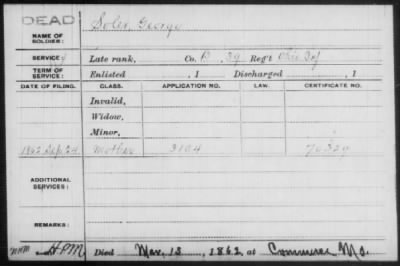 DEAD
NAME OF SOLDIER: Soler, George
SERVICE: Late rank, Co. B, 39 Reg't Ohio Inf
TERM OF SERVICE: Enlisted , 1 Discharged , 1
DATE OF FILING. CLASS. APPLICATION NO. LAW. CERTIFICATE NO.
Invalid,
Widow,
Minor,
1862 Sep. 24 Mother 3104
ADDITIONAL SERVICES:
REMARKS:
HPM Died Mar. 13, 1862, at Commerce Mo.